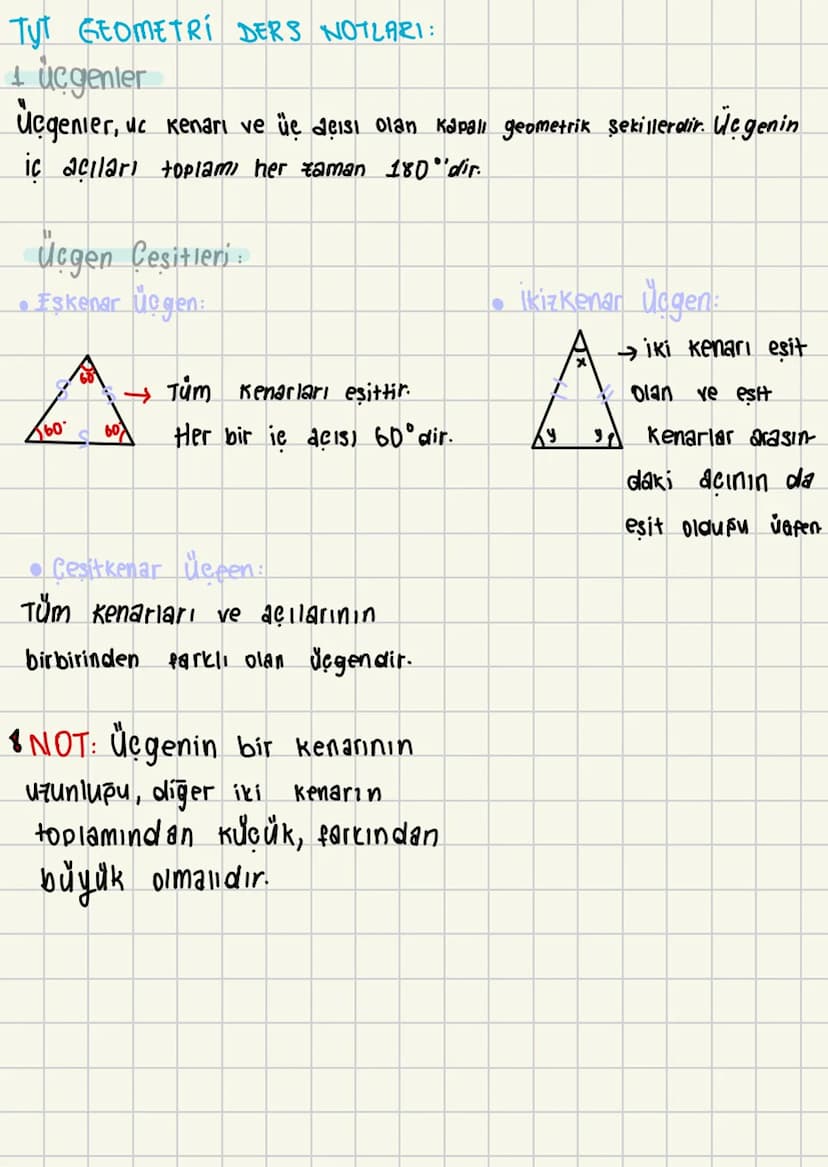 TYT GEOMETRİ DERS NOTLARI:
1 üçgenler
Üçgenler, uc kenarı ve üç açısı olan kapalı geometrik şekillerdir. Üçgenin
iç açıları toplamı her zaman 180°'dir.
Üçgen Çeşitleri:
• Eşkenar Üçgen:
60°
60°
60°
→ Tüm kenarları eşittir.
Her bir iç açısı 60°dir.
• İkizkenar Üçgen:
x
y
y
→ iki kenarı eşit
olan ve eşit
kenarlar arasın
daki açının da
eşit olduğu üçgen
• Çeşitkenar Üçgen:
Tüm kenarları ve açılarının
birbirinden farklı olan üçgendir.
NOT: Üçgenin bir kenarının
uzunluğu, diğer iki kenarın
toplamından küçük, farkından
büyük olmalıdır.